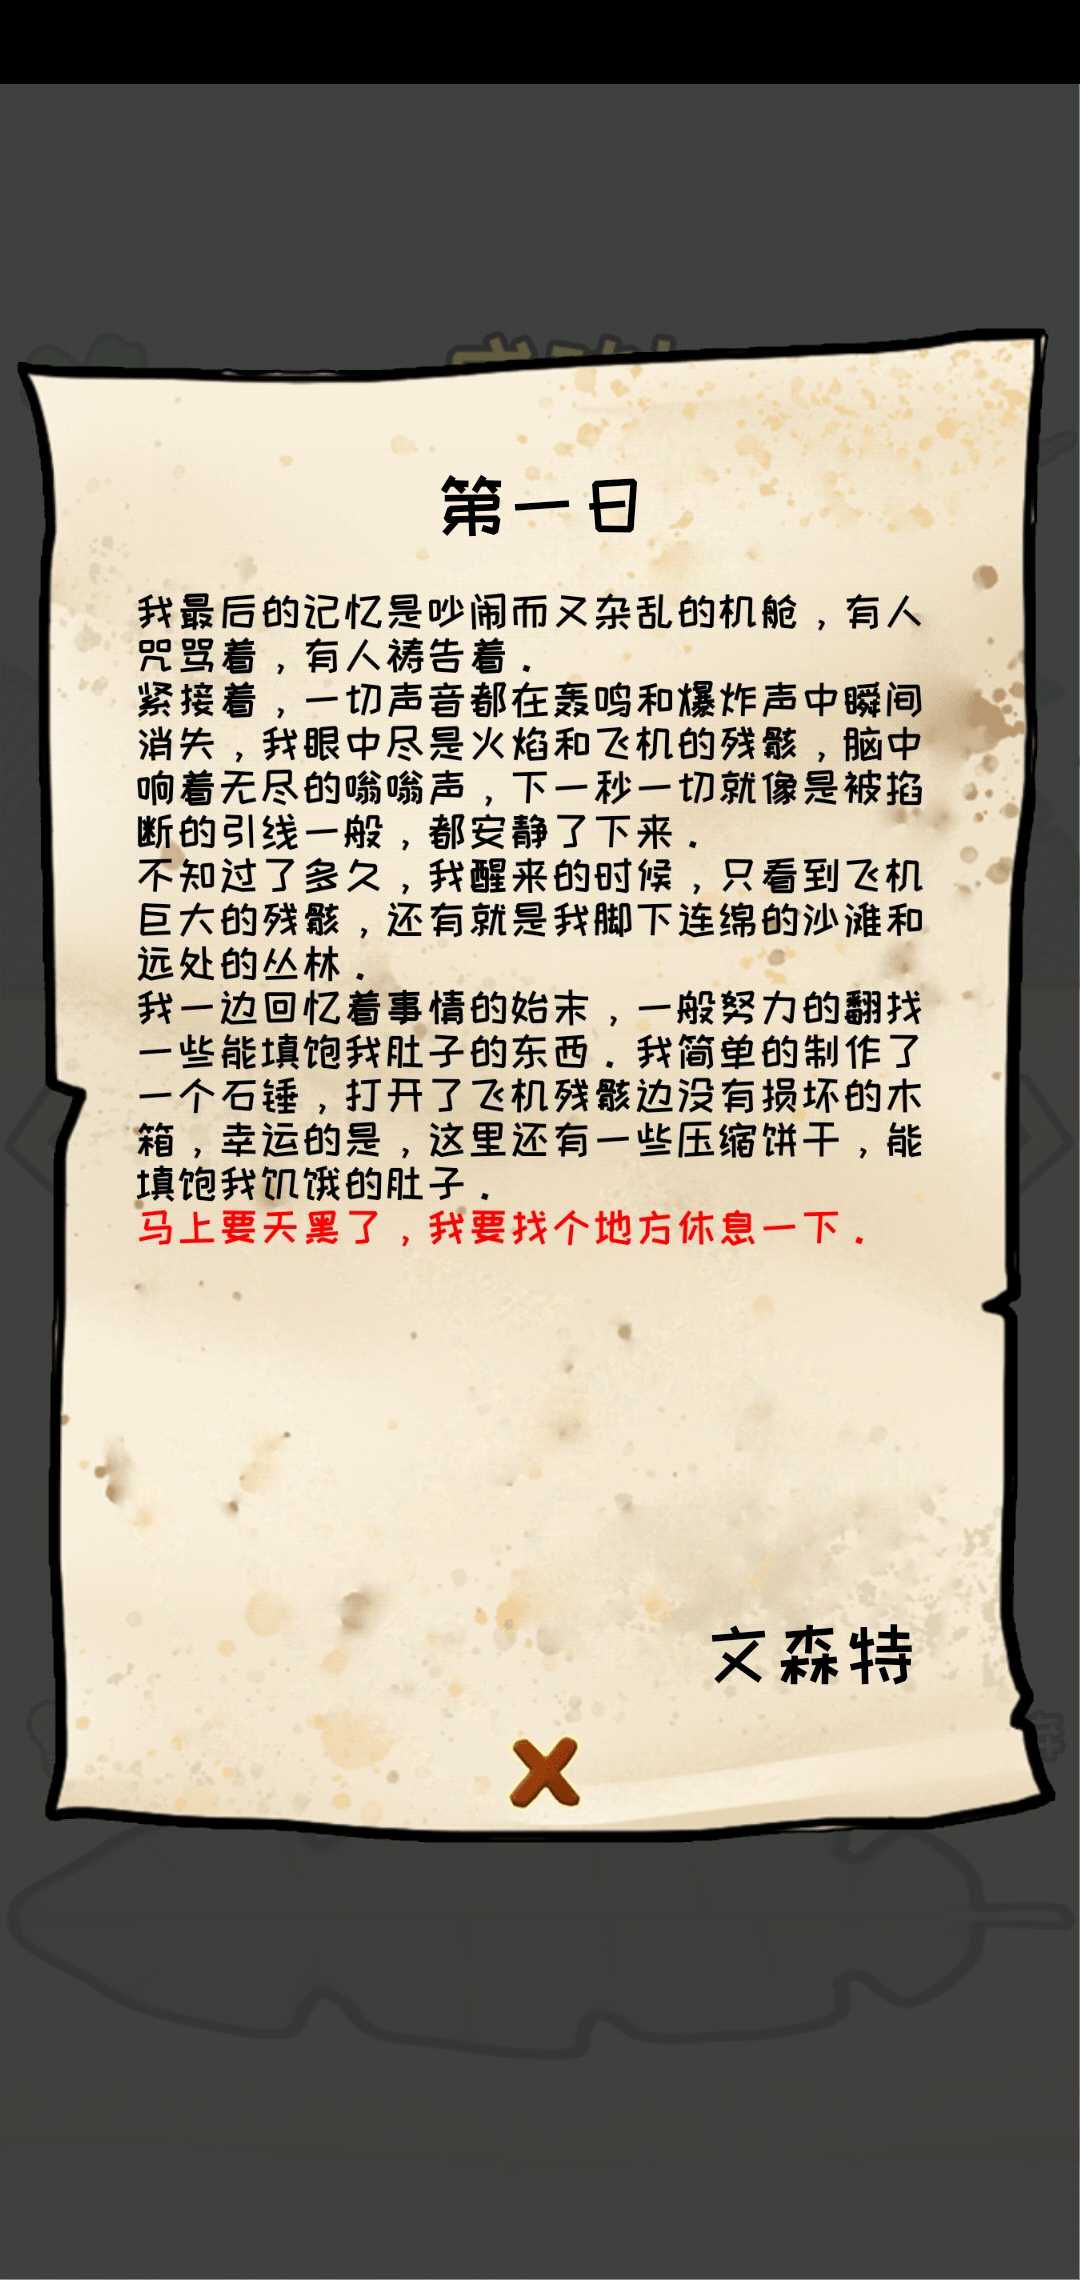 第一日
我最后的记忆是吵闹而又杂乱的机舱，有人
咒骂着，有人祷告着．
紧接着，一切声音都在轰鸣和爆炸声中瞬间
消失，我眼中尽是火焰和飞机的残骸，脑中
响着无尽的嗡嗡声，下一秒一切就像是被掐
断的引线一般，都安静了下来．
不知过了多久，我醒来的时候，只看到飞机
巨大的残骸，还有就是我脚下连绵的沙滩和
远处的丛林．
我一边回忆着事情的始末，一般努力的翻找
一些能填饱我肚子的东西．我简单的制作了
一个石锤，打开了飞机残骸边没有损坏的木
箱，幸运的是，这里还有一些压缩饼干，能
填饱我饥饿的肚子．
马上要天黑了，我要找个地方休息一下．
文森特